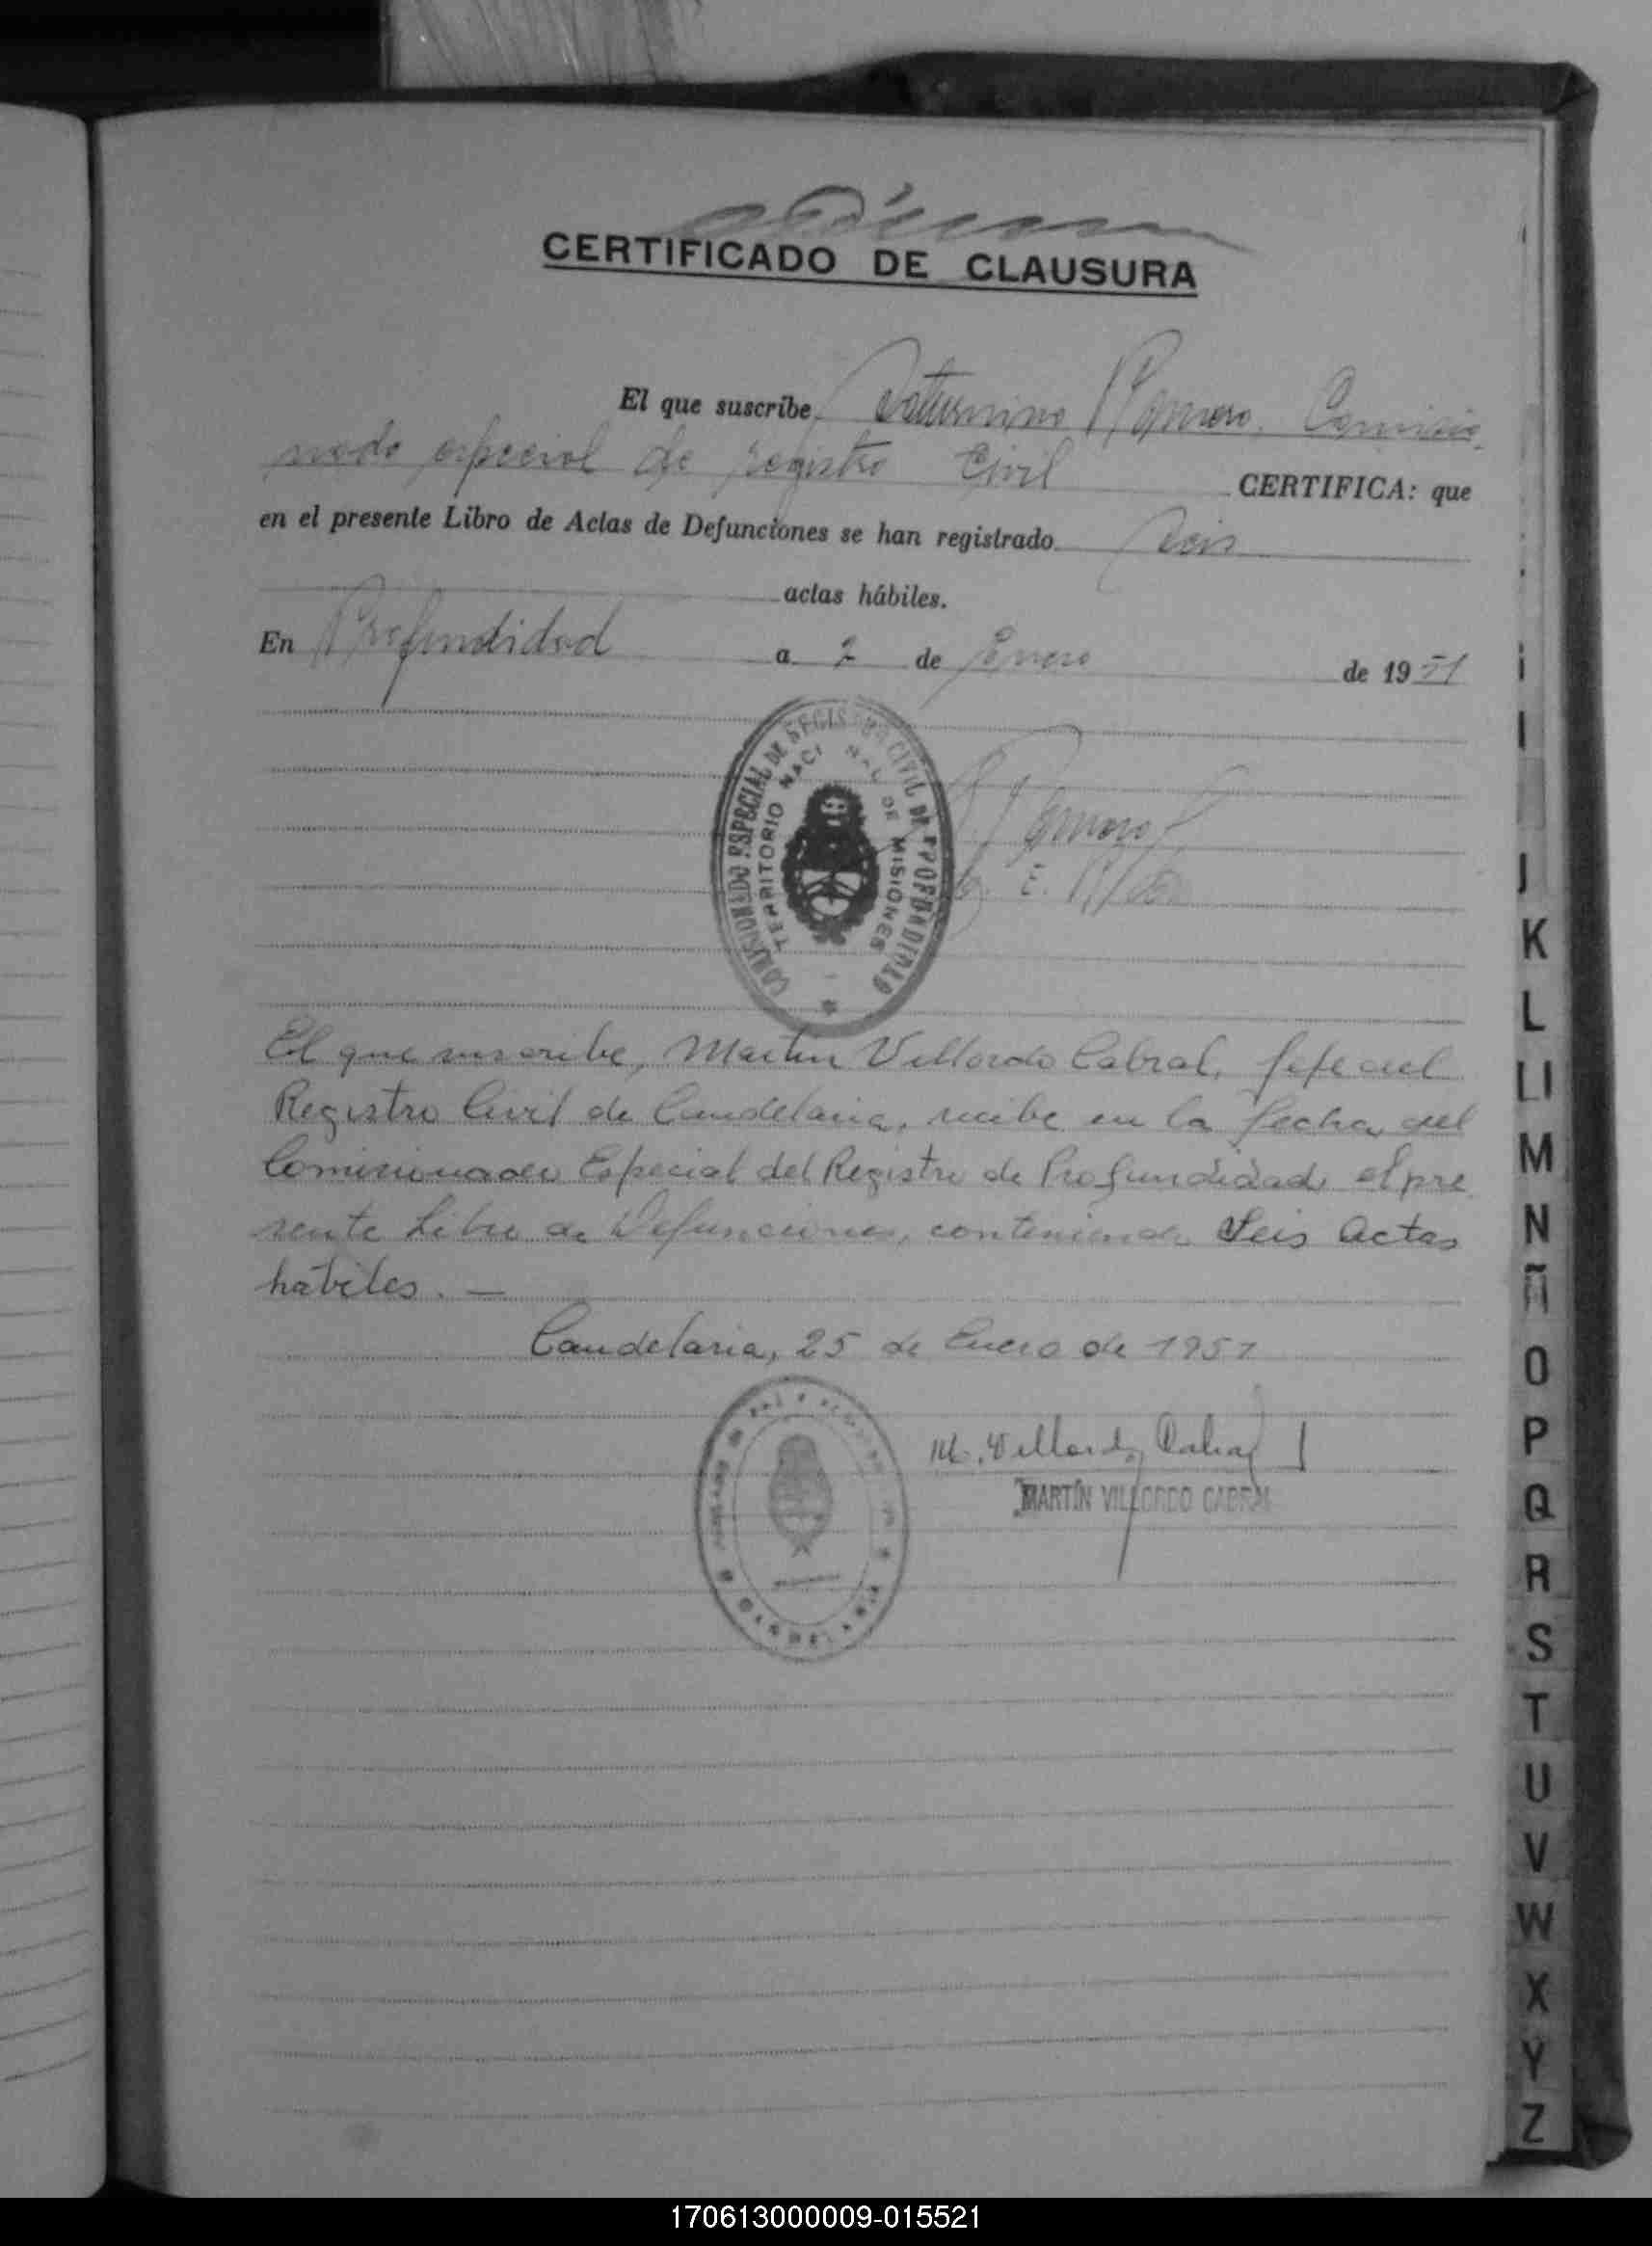 CERTIFICADO DE CLAUSURA
El que suscribe Saturnino Romero, Comisio
nado especial de registro Civil CERTIFICA: que
en el presente Libro de Actas de Defunciones se han registrado Seis
actas hábiles.
En Profundidad a 2 de Enero de 1951
COMISIONADO ESPECIAL DE REGISTRO CIVIL DE PROFUNDIDAD
TERRITORIO NACIONAL DE MISIONES
El que suscribe, Martin Villordo Cabral, Jefe del
Registro Civil de Candelaria, recibe en la fecha, del
Comisionado Especial del Registro de Profundidad el pre
sente Libro de Defunciones, conteniendo Seis Actas
habiles. —
Candelaria, 25 de Enero de 1951
M. Villordo Cabral
MARTÍN VILLORDO CABRAL
CANDELARIA
I
J
K
L
Ll
M
N
Ñ
O
P
Q
R
S
T
U
V
W
X
Y
Z
170613000009-015521